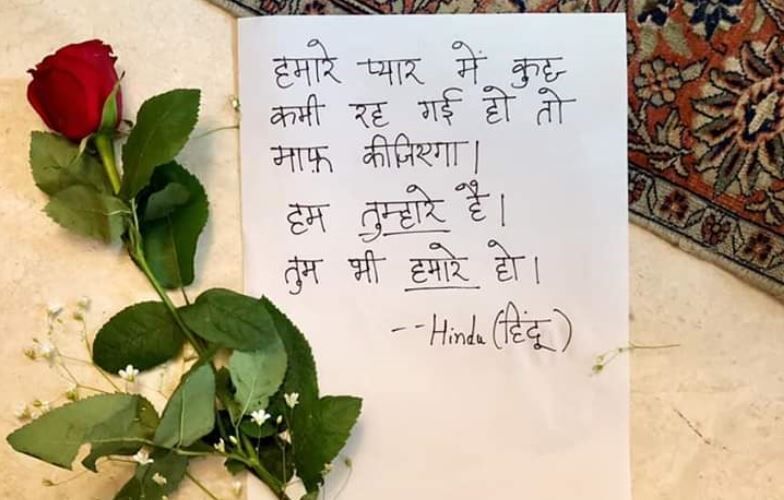 हमारे प्यार में कुछ
कमी रह गई हो तो
माफ़ कीजिएगा।
हम तुम्हारे है।
तुम भी हमारे हो।
-- Hindu (हिंदू)